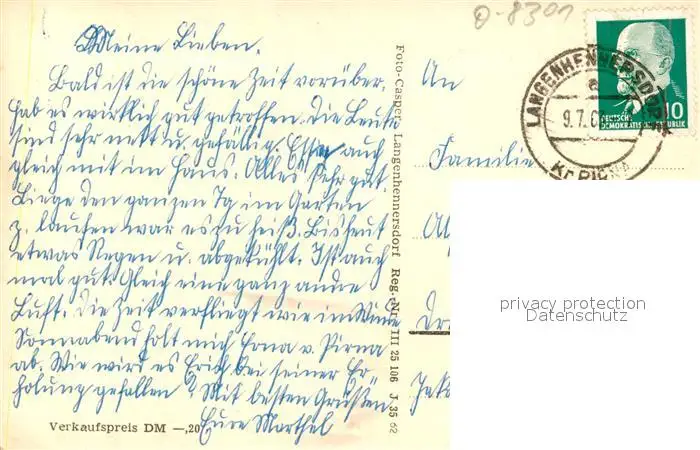 O-8301
Meine Lieben.
Bald ist die schöne Zeit vorüber,
hab es wirklich gut getroffen. Die Leute
sind sehr nett u. gefällig. Essen auch
gleich mit im Haus. Alles sehr gut.
Liege den ganzen Tg im Garten
z. laufen war es zu heiß. Bis heut
etwas Regen u. abgekühlt. Ist auch
mal gut. Gleich eine ganz andre
Luft. Die Zeit verfliegt wie im Winde
Sonnabend holt mich Erna v. Pirna
ab. Wie wird es Erich bei seiner Er-
holung gefallen? Mit besten Grüßen
Eure Marthel
Verkaufspreis DM —,20
Foto-Casper, Langenhennersdorf Reg.-Nr. III 25 106 J 35 62
An
Familie
LANGENHENNERSDORF
a
9.7.6
Kr PIRNA
10
DEUTSCHE
DEMOKRATISCHE REPUBLIK
privacy protection
Datenschutz